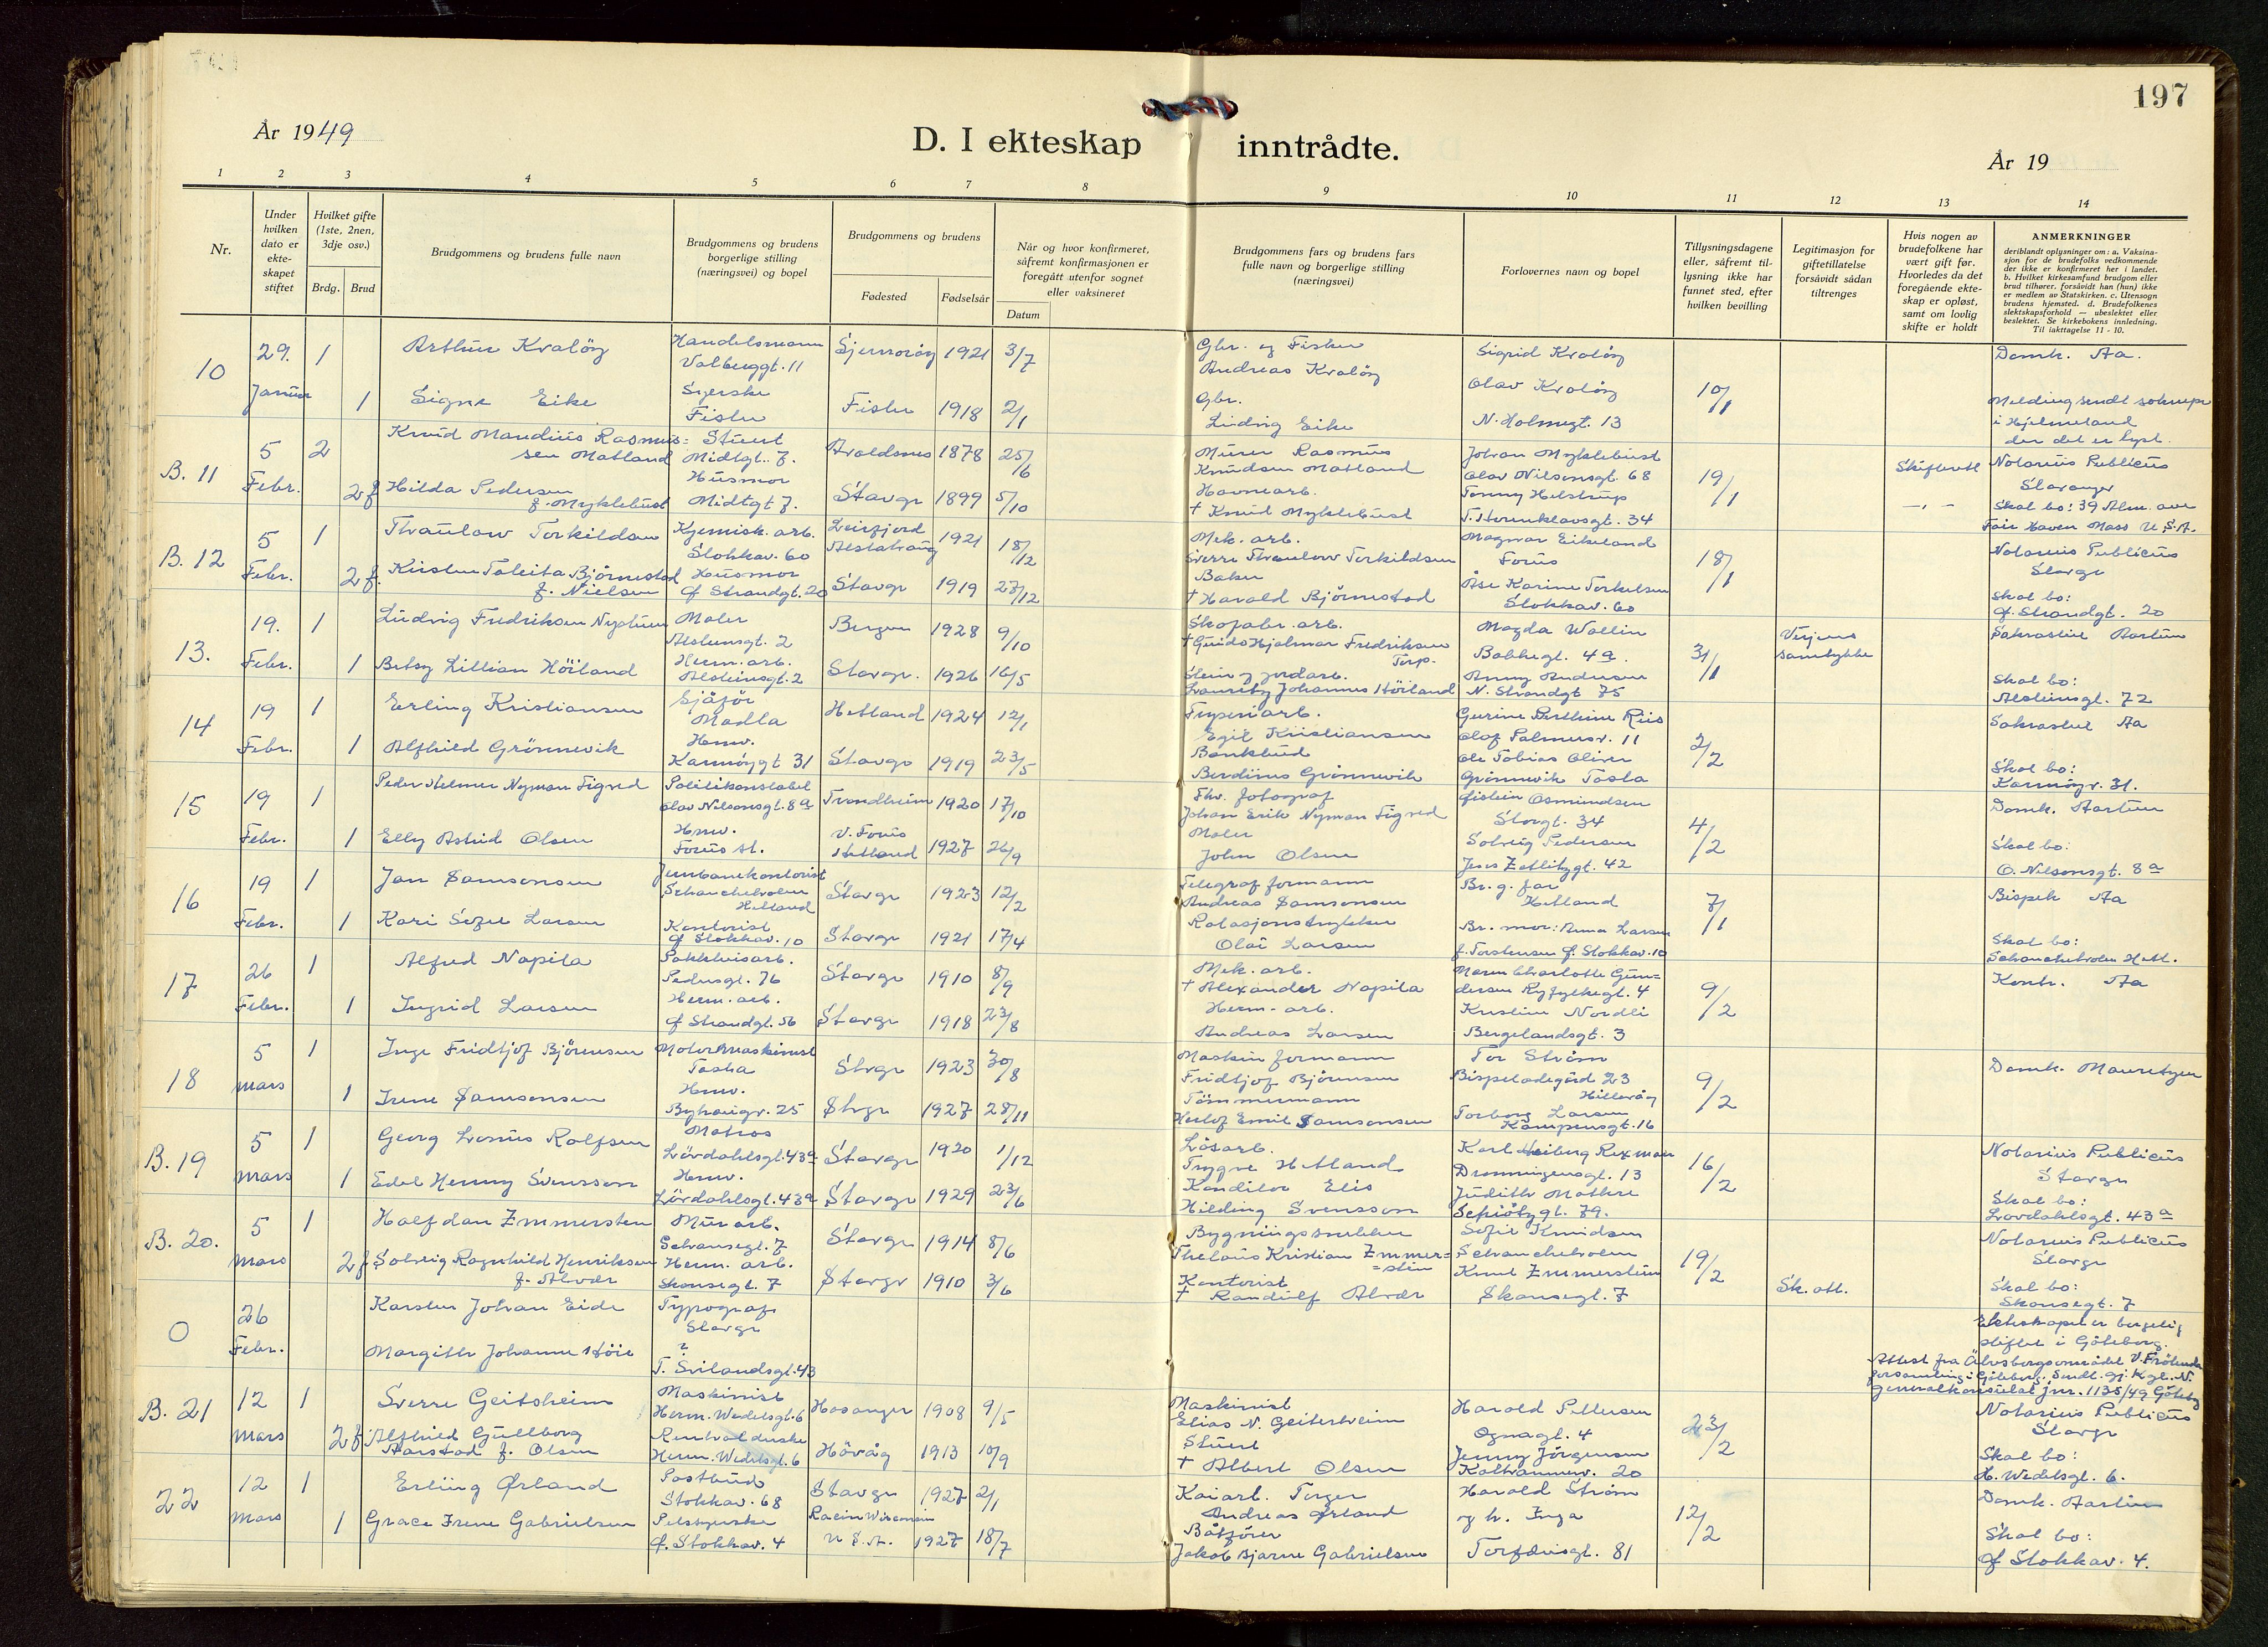 197
År 1949
D. I ekteskap inntrådte.
År 19
1 2 3 4 5 6 7 8 9 10 11 12 13 14
Nr.
Under hvilken dato er ekte-skapet stiftet
Hvilket gifte (1ste, 2nen, 3dje osv.)
Brdg. Brud
Brudgommens og brudens fulle navn
Brudgommens og brudens borgerlige stilling (næringsvei) og bopel
Brudgommens og brudens
Fødested
Fødselsår
Når og hvor konfirmeret, såfremt konfirmasjonen er foregått utenfor sognet eller vaksineret
Datum
Brudgommens fars og brudens fars fulle navn og borgerlige stilling (næringsvei)
Forlovernes navn og bopel
Tillysningsdagene eller, såfremt til-lysning ikke har funnet sted, efter hvilken bevilling
Legitimasjon for giftetillatelse forsåvidt sådan tiltrenges
Hvis nogen av brudefolkene har vært gift før. Hvorledes da det foregående ekte-skap er opløst, samt om lovlig skifte er holdt
ANMERKNINGER
deriblandt oplysninger om: a. Vaksina-sjon for de brudefolks vedkommende der ikke er konfirmeret her i landet. b. Hvilket kirkesamfund brudgom eller brud tilhører, forsåvidt han (hun) ikke er medlem av Statskirken. c. Utensogn brudens hjemsted. d. Brudefolkenes slektskapsforhold — ubeslektet eller beslektet. Se kirkebokens innledning. Til iakttagelse 11 - 10.
10 29. Januar 1 Arthur Kvaløy Handelsmann Valberggt. 11 Sjernarøy 1921 3/7 Gbr. og Fisker Andreas Kvaløy Sigrid Kvaløy 10/1 Domk. Aa.
1 Signe Eike Syerske Fister Fister 1918 2/1 Gbr. Ludvig Eike Olav Kvaløy N. Holmegt. 13 Melding sendt soknepr i Hjelmeland der det er lyst.
B. 11 5 Febr. 2 Knud Mandius Rasmus=sen Matland Stuert Midtgt. 7. Avaldsnes 1878 25/6 Murer Rasmus Knudsen Matland Johan Myklebust Olav Nilsensgt. 68 19/1 Skifteatt Notarius Publicus Stavanger
2 f Hilda Pedersen f. Myklebust Husmor Midtgt 7. Stavgr 1899 5/10 Havnearb. † Knud Myklebust Tonny Helstrup T. Hornklovsgt. 34 —„— Skal bo: 39 Alm. ave Fair Haven Mass U.S.A.
B. 12 5 Febr. 1 Thraulow Torkildsen Kjemisk. arb. Stokkav. 60 Leirfjord Alstahaug 1921 18/12 Mek. arb. Sverre Thraulow Torkildsen Magnar Eikeland Forus 18/1 Notarius Publicus Stavgr
2 f. Kirsten Taleita Bjørnestad f. Nielsen Husmor Ø Strandgt. 20 Stavgr 1919 27/12 Baker † Harald Bjørnestad Åse Karine Torkelsen Stokkav. 60 Skal bo: Ø. Strandgt. 20
13. 19. Febr. 1 Ludvig Fredriksen Nystuen Maler Alsteinsgt. 2 Bergen 1928 9/10 Skofabr. arb. † Guido Hjalmar Fredriksen Torp. Magda Wallin Bakkegt. 4a. 31/1 Verjens samtykke Sakrastiet Aartun
1 Betsy Lillian Höiland Herm. arb. Alsteinsgt. 2 Stavgr. 1926 16/5 Stein og jordarb. Lauritz Johannes Höiland Anny Andersen N. Strandgt 75 Skal bo: Alsteinsgt. 72
14 19 Febr. 1 Erling Kristiansen Sjåför Madla Hetland 1924 12/1 Fryseriarb. Egil Kristiansen Gurine Berthine Riis Olaf Palmesv. 11 2/2 Sakrastiet Aa
1 Alfhild Grönnevik Hmv. Karmöygt 31 Stavgr 1919 23/5 Bankbud Berdines Grönnevik Ole Tobias Oliver Grönnevik Tasta Skal bo: Karmöygt. 31.
15 19 Febr. 1 Peder Helmer Nyman Figved Politikonstabel Olav Nilsensgt. 8a Trondheim 1920 17/10 Fhv. fotograf Johan Erik Nyman Figved Øistein Osmundsen Storgt. 34 4/2 Domk. Aartun
1 Elly Astrid Olsen Hmv. Forus st. V. Forus Hetland 1927 26/9 Maler John Olsen Solveig Pedersen Jens Zetlitzgt. 42 Skal bo: O. Nilsensgt. 8a
16 19 Febr. 1 Jan Samsonsen Jernbanekontorist Schancheholen Hetland Stavgr 1923 12/2 Telegraf formann Andreas Samsonsen Br.g. far Hetland 7/1 Bispek Aa
1 Kari Sofie Larsen Kontorist Ø Stokkav. 10 Stavgr 1921 17/4 Rotasjonstrykker Olai Larsen Br. mor: Anna Larsen f. Torstensen Ø. Stokkav. 10 Skal bo: Schancheholen Hetl.
17 26 Febr. 1 Alfred Napila Pakkhusarb. Pedersgt. 76 Stavgr 1910 8/9 Mek. arb. † Alexander Napila Maren Charlotte Gun=dersen Ryfylkegt. 4 9/2 Kontr. Aa
1 Ingrid Larsen Herm. arb. Ø Strandgt. 56 Stavgr 1918 23/8 Herm. arb. Andreas Larsen Kristine Nordli Bergelandsgt. 3
18 5 mars 1 Inge Fridtjof Björnsen Motormaskinist Tasta Stvgr 1923 30/8 Maskin formann Fridtjof Björnsen Tor Ström Bispeladegård 23 Hillevåg 9/2 Domk. Mauritzen
1 Irene Samsonsen Hmv. Byhaugv. 25 Stvgr 1927 28/11 Tömmermann Herlof Emil Samsonsen Torborg Larsen Kampensgt. 16
B. 19 5 mars 1 Georg Rolfsen Matros Lövdahlsgt. 43a Stavgr 1920 1/12 Låsarb. Trygve Hetland Karl Heiberg Rexman Dronningensgt. 13 16/2 Notarius Publicus Stavgr
1 Edel Henny Svensson Hmv. Lövdahlsgt. 43a Stavgr 1929 23/6 Konditor Elis Hilding Svensson Judith Mathre Schiötzgt. 79. Skal bo: Lövdahlsgt. 43a
B. 20. 5 mars 1 Halfdan Zmmerstein Murarb. Schansegt. 7 Stavgr 1914 8/6 Bygningssnekker Thelaus Kristian Zmmer==stein Sofie Knudsen Schancheholen 19/2 Notarius Publicus Stavgr
2 f Solveig Ragnhild Henriksen f. Alvær Herm. arb. Skansegt. 7 Stavgr 1910 3/6 Kontorist † Randulf Alvær Knut Zmmerstein Skansegt. 7 Sk. att. Skal bo: Skansegt. 7
0 26 Febr. Karsten Johan Eide Typograf Stavgr Ekteskapet er borgelig stiftet i Göteborg.
Margith Johanne Höie ? T. Svilandsgt. 43 Attest fra Älvsborgsområdet V. Frölunda forsamling i Göteborg. Sendt gj. Kgl. N. generalkonsulat jnr. 1135/49 Göteborg
B. 21 12 mars 1 Sverre Geitsheim Maskinist Herm. Wedelsgt. 6 Hosanger 1908 9/5 Maskinist Elias N. Geiterheim Harald Pettersen Ognagt. 4 23/2 Notarius Publicus Stavgr
2 f Alfhild Gullborg Aarstad f. Olsen Herm. Wedelsgt. 6 Hövåg 1913 10/9 Stuert † Albert Olsen Jenny Jörgensen Kalhammerv. 20 Skal bo: H. Wedelsgt. 6.
22 12 mars 1 Erling Ørland Postbud Stokkav. 68 Stavgr 1927 2/1 Kaiarb. Torger Andreas Ørland Harald Ström og h. Inga 12/2 Domk. Aartun
1 Grace Irene Gabrielsen Pelssyerske Ø. Stokkav. 4 Racin Wisconsin U.S.A. 1927 18/7 Båtförer Jakob Bjarne Gabrielsen Torfæusgt. 81 Skal bo: Ø Stokkav. 4.